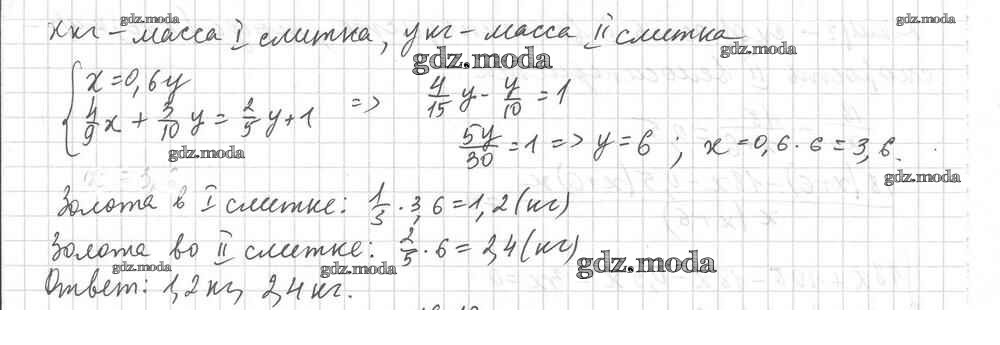 x кг – масса I слитка, y кг – масса II слитка
gdz.moda
gdz.moda
gdz.moda
gdz.moda
x = 0,6y
4/9 x + 3/10 y = 2/5 y + 1 => 4/15 y - y/10 = 1
5y/30 = 1 => y = 6 ; x = 0,6 · 6 = 3,6.
gdz.moda
gdz.moda
Золота в I слитке: 1/3 · 3,6 = 1,2 (кг)
gdz.moda
Золота во II слитке: 2/5 · 6 = 2,4 (кг)
gdz.moda
gdz.moda
gdz.moda
gdz.moda
Ответ: 1,2 кг, 2,4 кг.